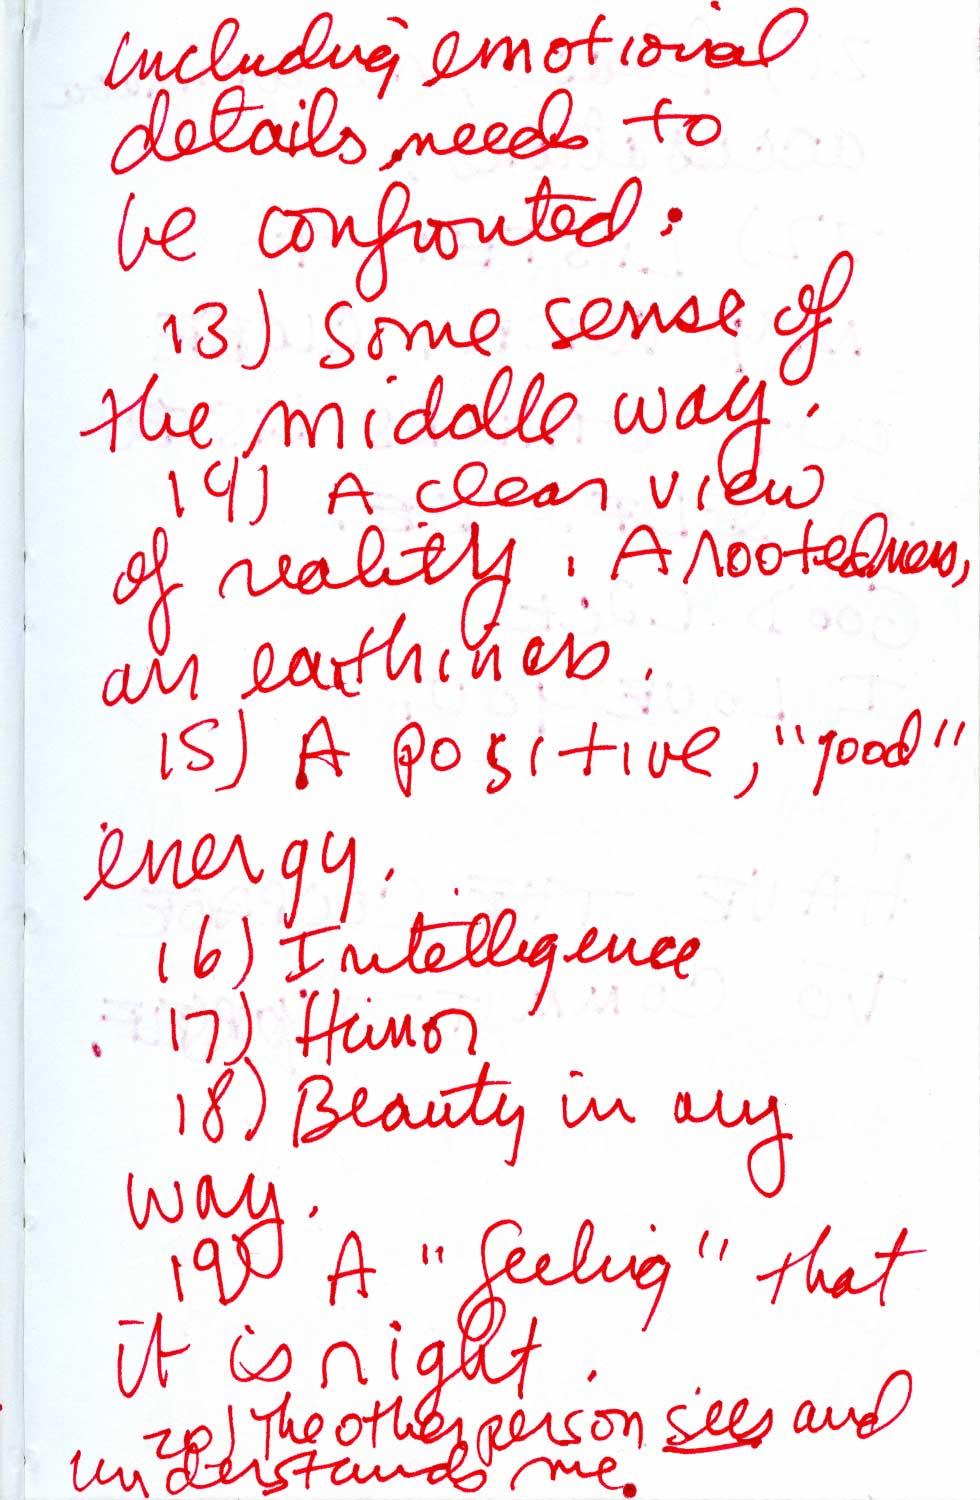 including emotional
details, needs to
be confronted.
13) Some sense of
the middle way.
14) A clear view
of reality. A rootedness,
an earthiness.
15) A positive, "good"
energy.
16) Intelligence
17) Humor
18) Beauty in any
way.
19) A "feeling" that
it is right.
20) The other person sees and
understands me.